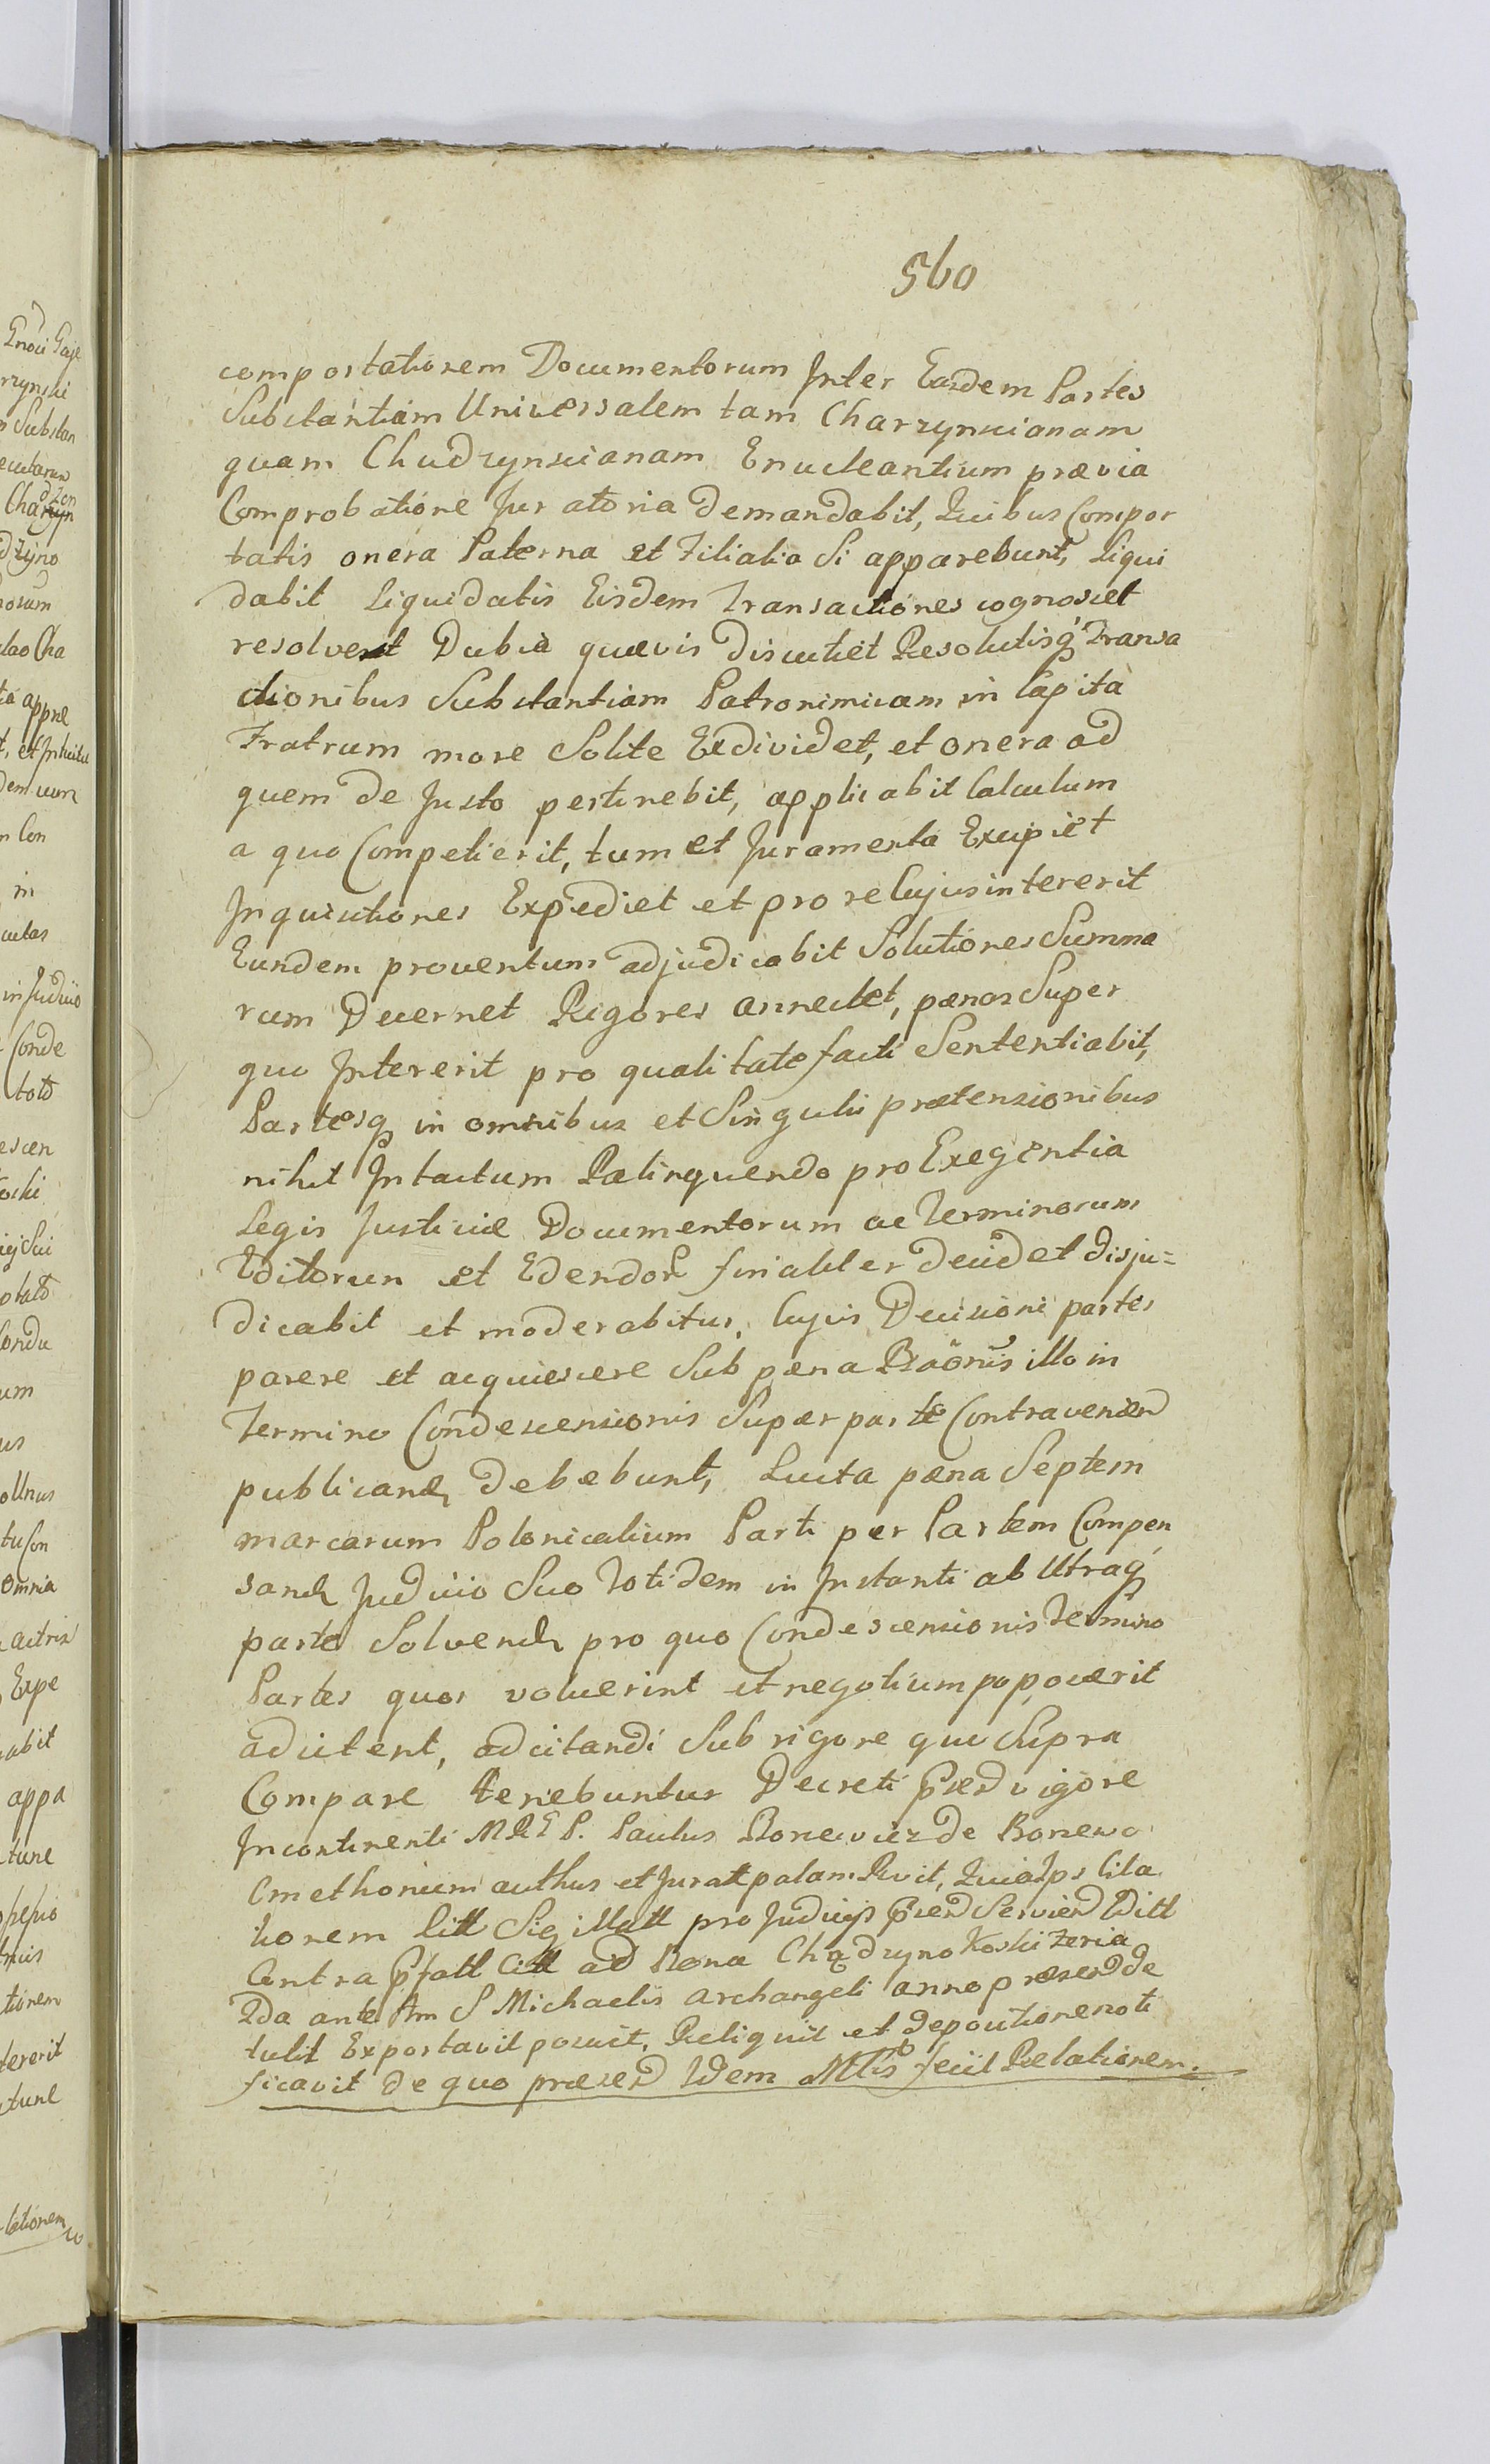 560
comportationem Documentorum Inter Easdem Partes
Substantiam Universalem tam Charzynscianam
quam Chudzynscianam Enucleantium prævia
Comprobatione Juratoria demandabit, Quibus Compor
tatis onera Paterna et Filialia Si apparebunt, Liqui
dabit Liquidatis Eisdem Transactiones cognoscet
resolvet Dubia quævis discutiet Resolutisq Transa
ctionibus Substantiam Patronimicam in Capita
Fratrum more Solite Exdividet, et onera ad
quem de Justo pertinebit, applicabit Calculum
a quo Competierit, tum et Juramenta Excipiet
Inquisitiones Expediet et pro re Cujus intererit
Eundem proventum adjudicabit Solutiones Summa
rum Decernet Rigores annectet, pænas Super
quo Intererit pro qualitate facti Sententiabit,
Partesq in omnibus et Singulis prætensionibus
nihil Intactum Relinquendo pro Exegentia
Legis Justiciæ Documentorum ac Terminorum
Editorum et Edendor finaliter decidet disju=
dicabit et moderabitur, Cujus Decisioni partes
parere et acquiescere Sub pæna Bãonis illo in
Termino Condescensionis Super parte Contravenien
publicand debebunt, Luita pæna Septem
marcarum Polonicalium Parti per Partem Compen
sand Judicio Suo Totidem in Instanti ab Utraq
parte Solvend pro quo Condescensionis Termino
Partes quos voluerint et negotium popoverit
adcitent, adcitandi Sub rigore quo Supra
Compare tenebuntur Decreti præsen vigore
Incontinenti MRGP. Paulus Bonewicz de Bonewo
Cmethonum authus et Jurat palam Rvit, Quia Ips Cita
tionem Litt Sigillatt pro Judicijs præsen Servien Ditt
Contra Pfatt Citt ad Bona Chądzyno Koski Feria
2da ante Fm S Michaelis Archangeli anno præsen de
tulit Exportavit posuit, Reliquit et depositione noti
ficavit de quo præsen Idem Mtlis fecit Relationem.